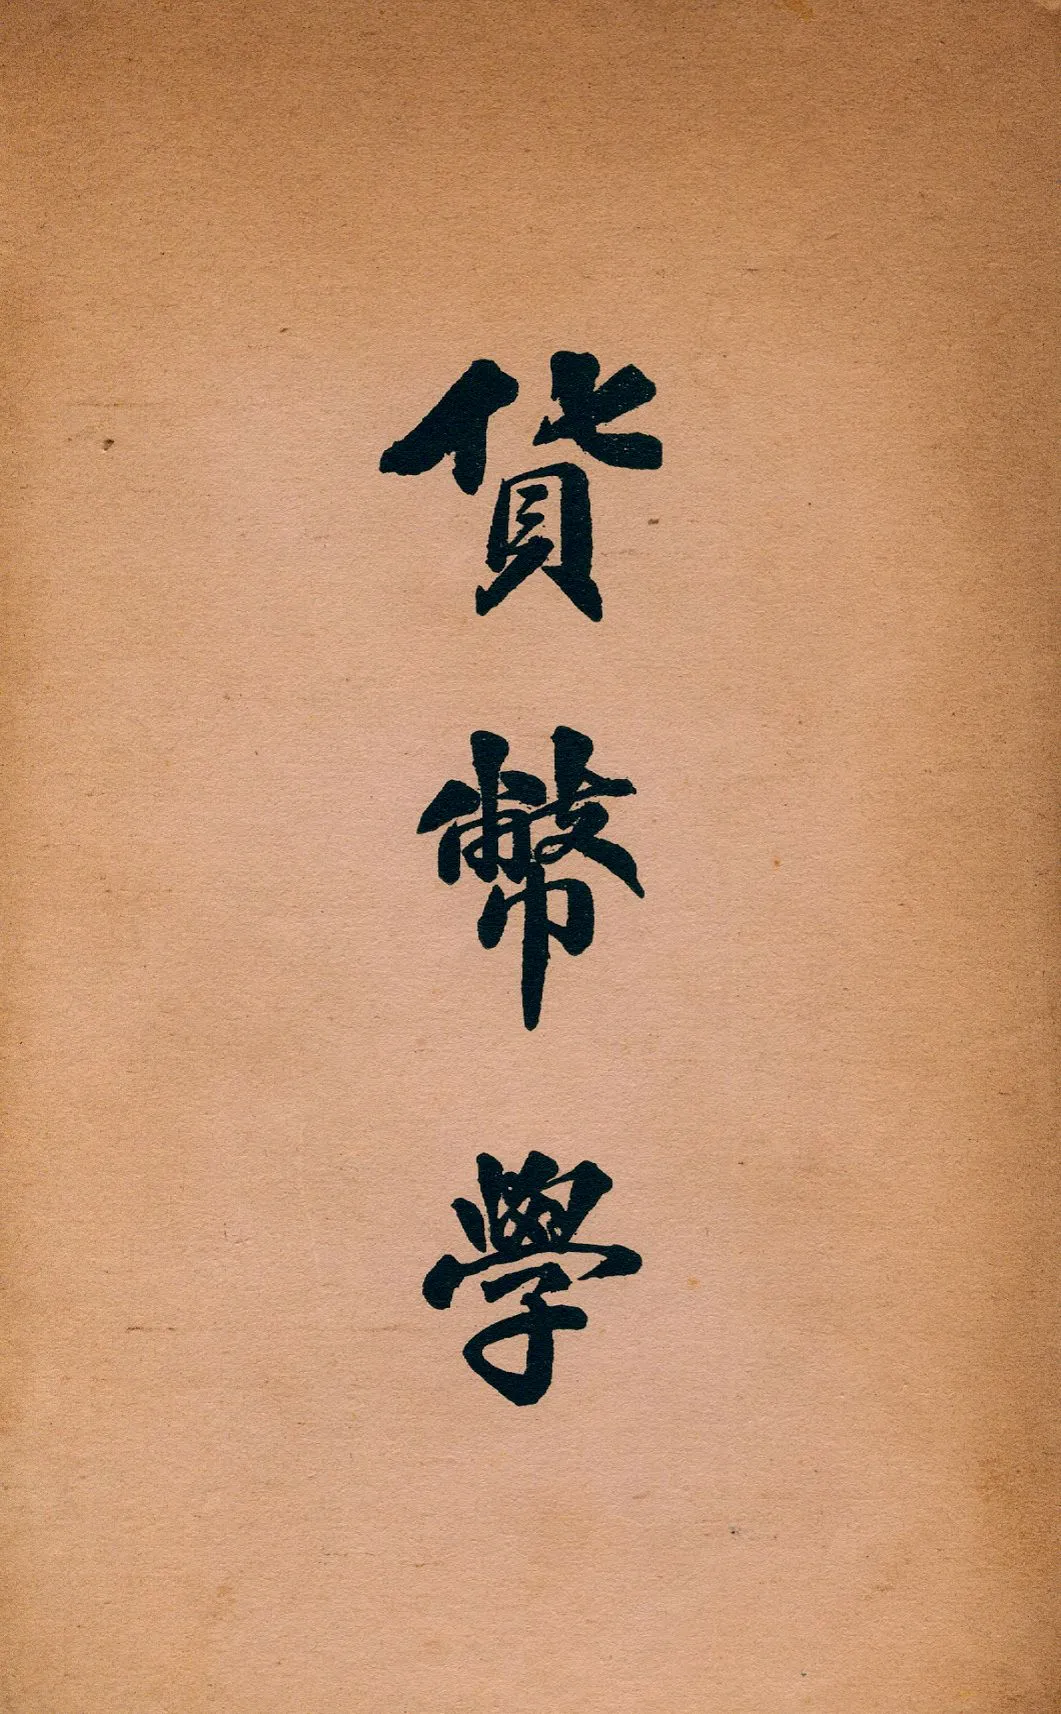 貨幣學